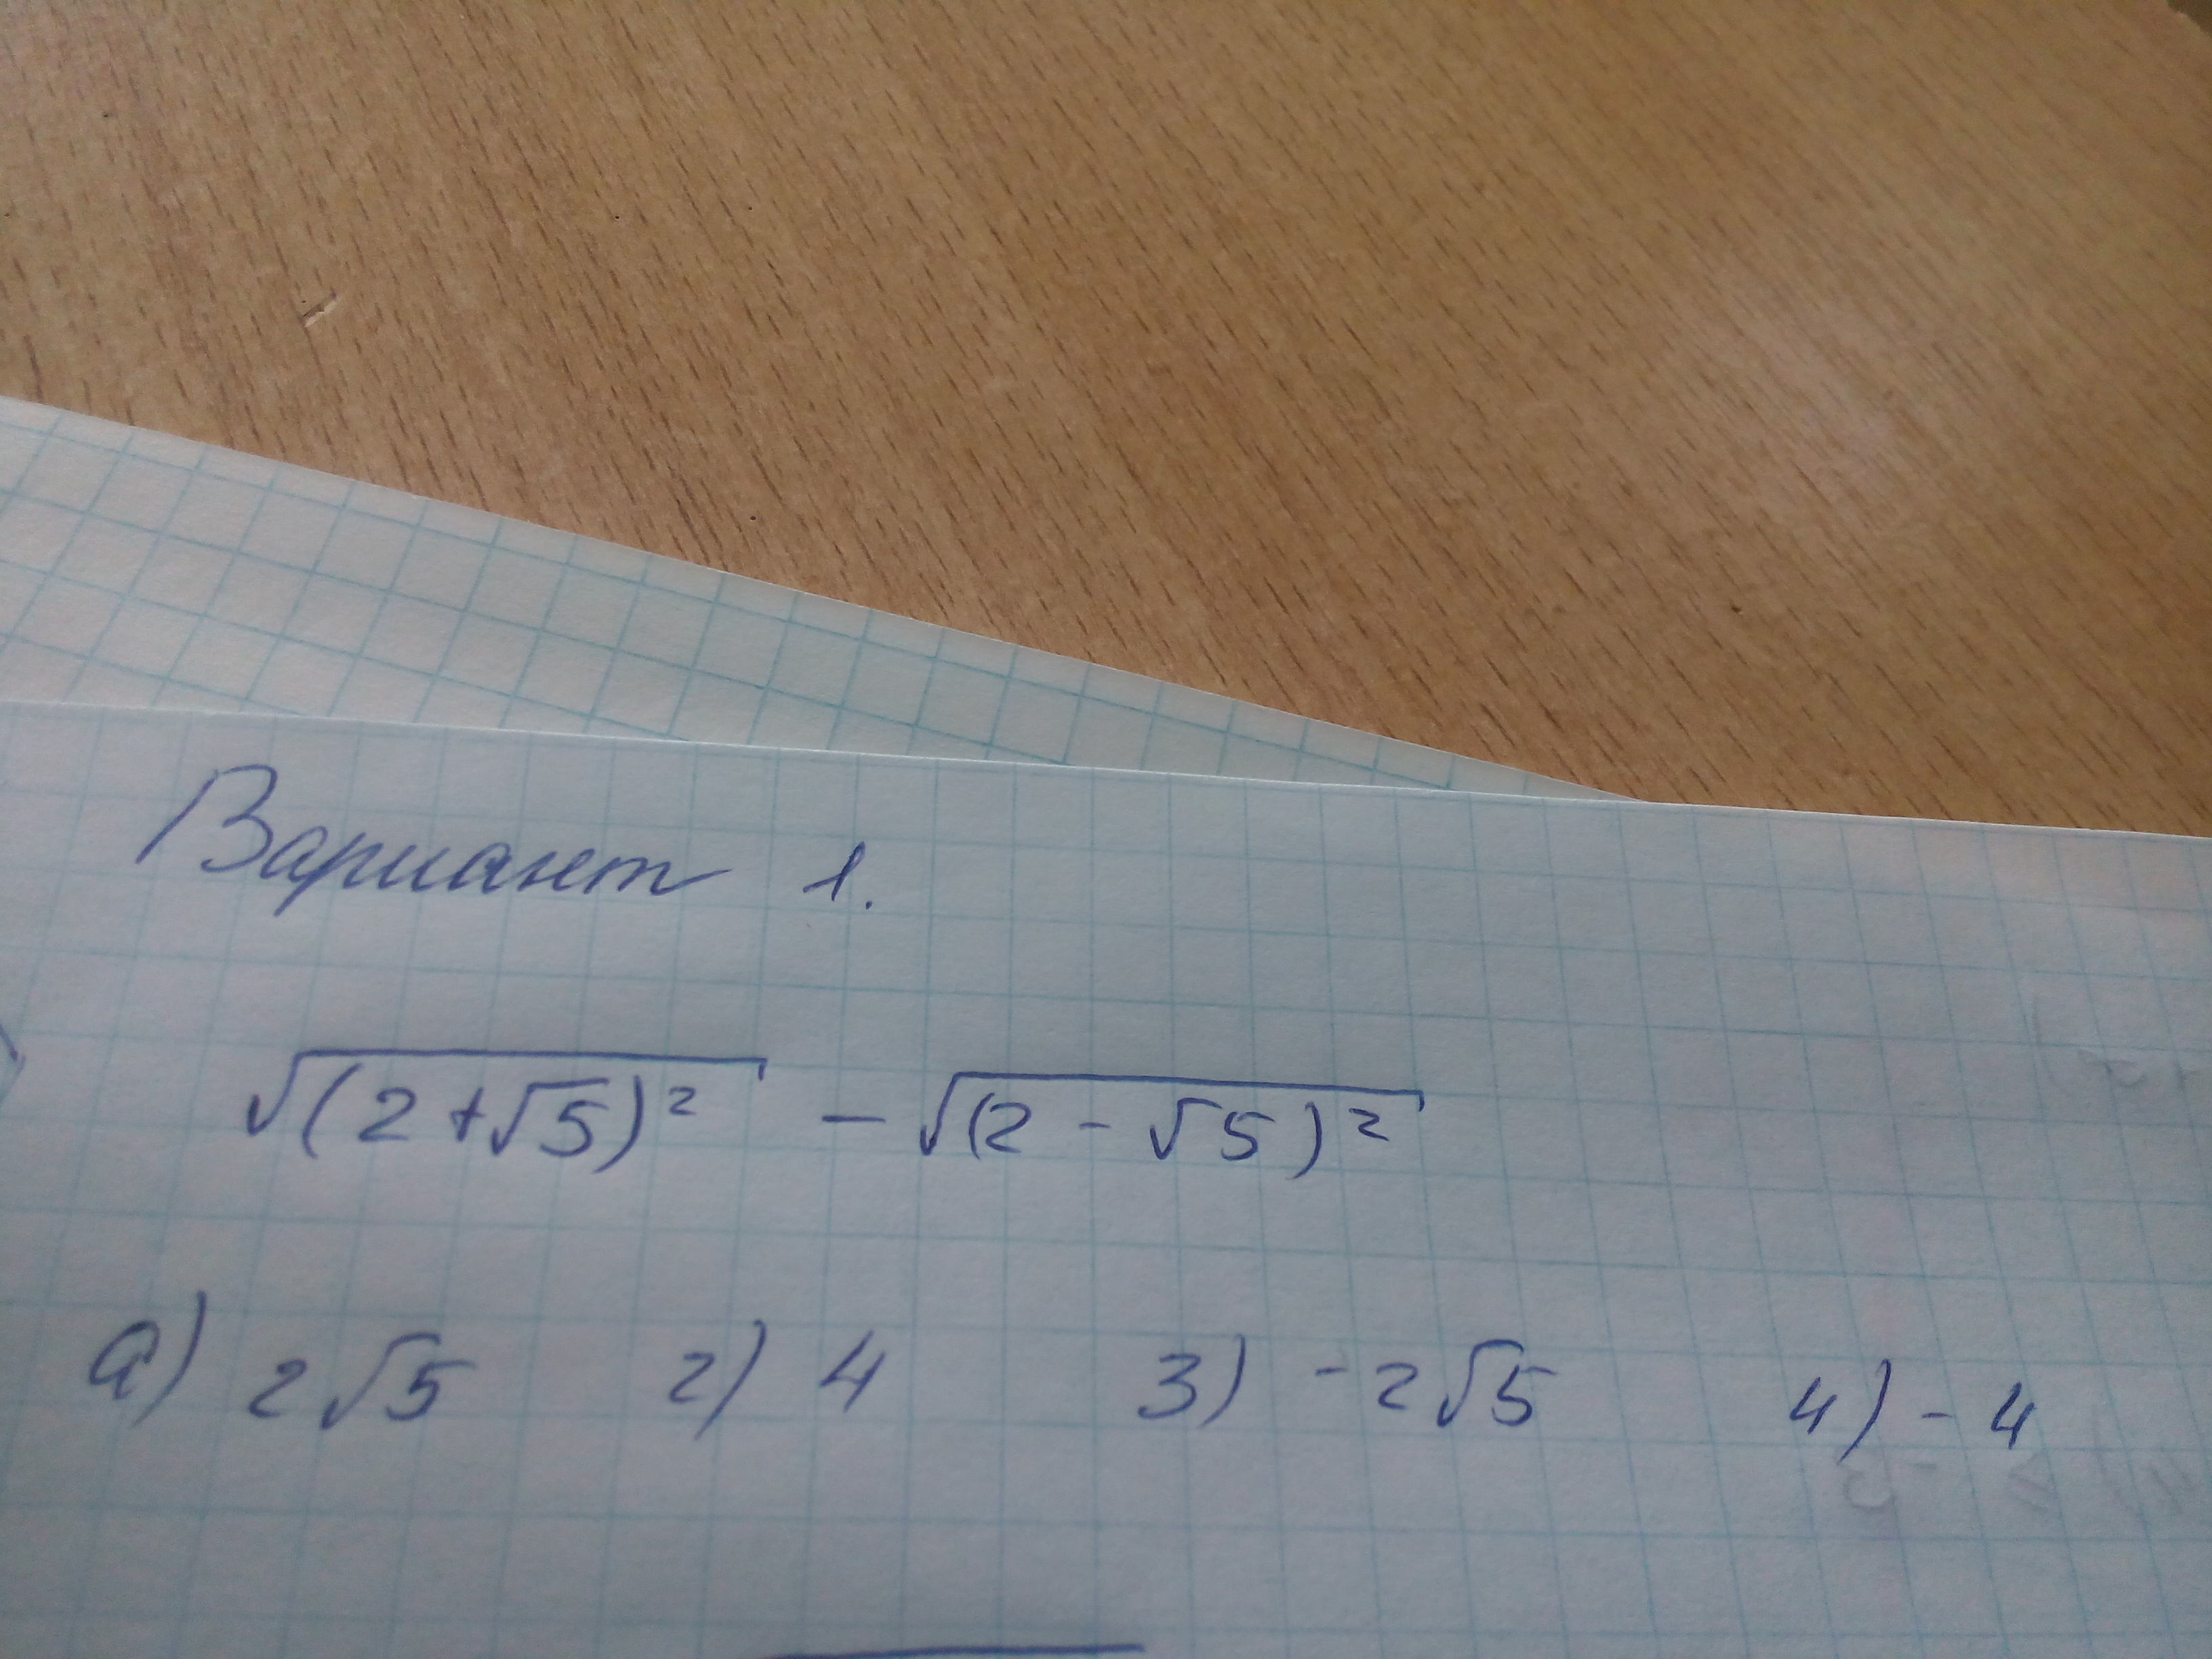 Вариант 1.
√(2+√5)² − √(2 − √5)²
а) 2√5 2) 4 3) -2√5 4) - 4